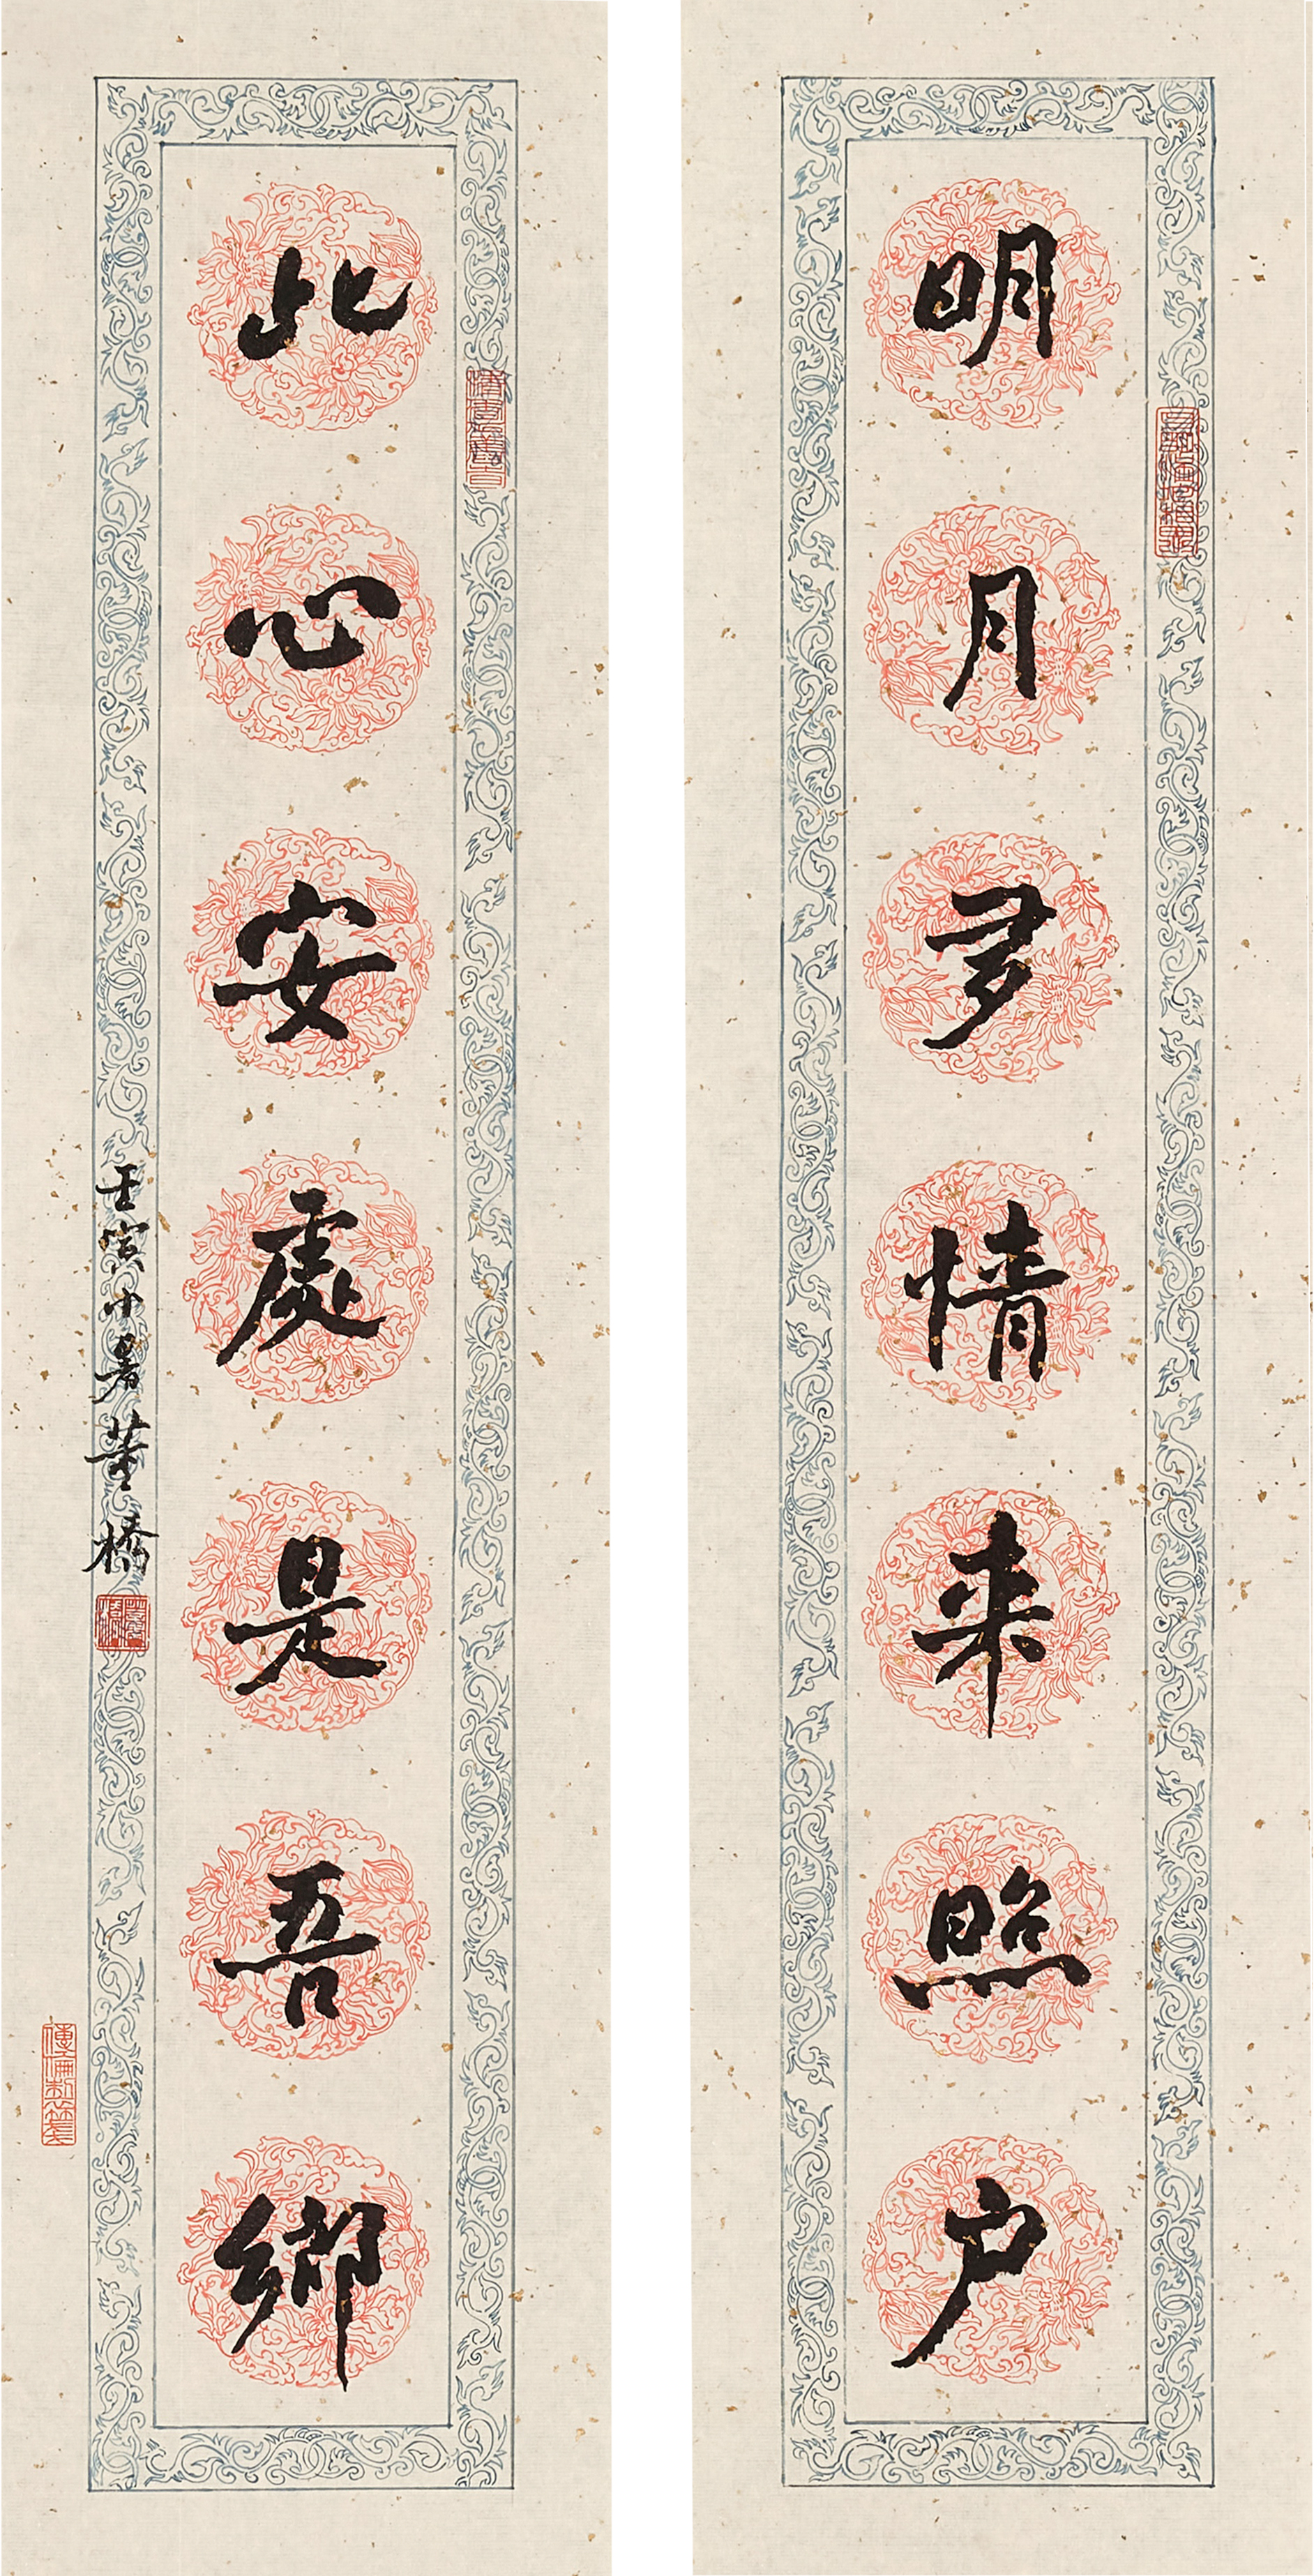 明月多情来照户
此心安處是吾鄉
壬寅小暑董橋
董橋